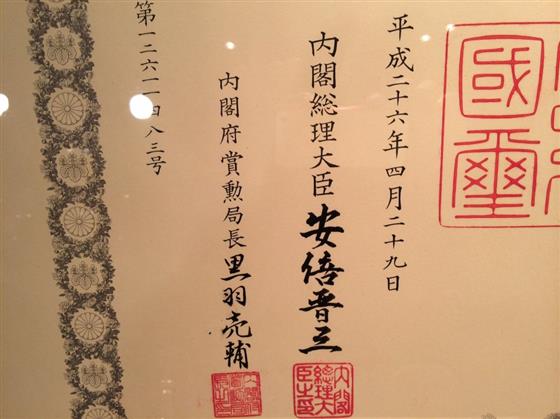 國璽
平成二十六年四月二十九日
内閣総理大臣 安倍晋三
内閣総理大臣之印
内閣府賞勲局長 黒羽亮輔
第一二六一一四八三号